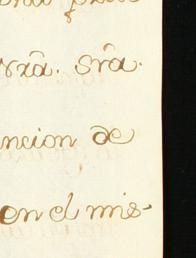 rxâ. srâ.
ncion de
en el mis-